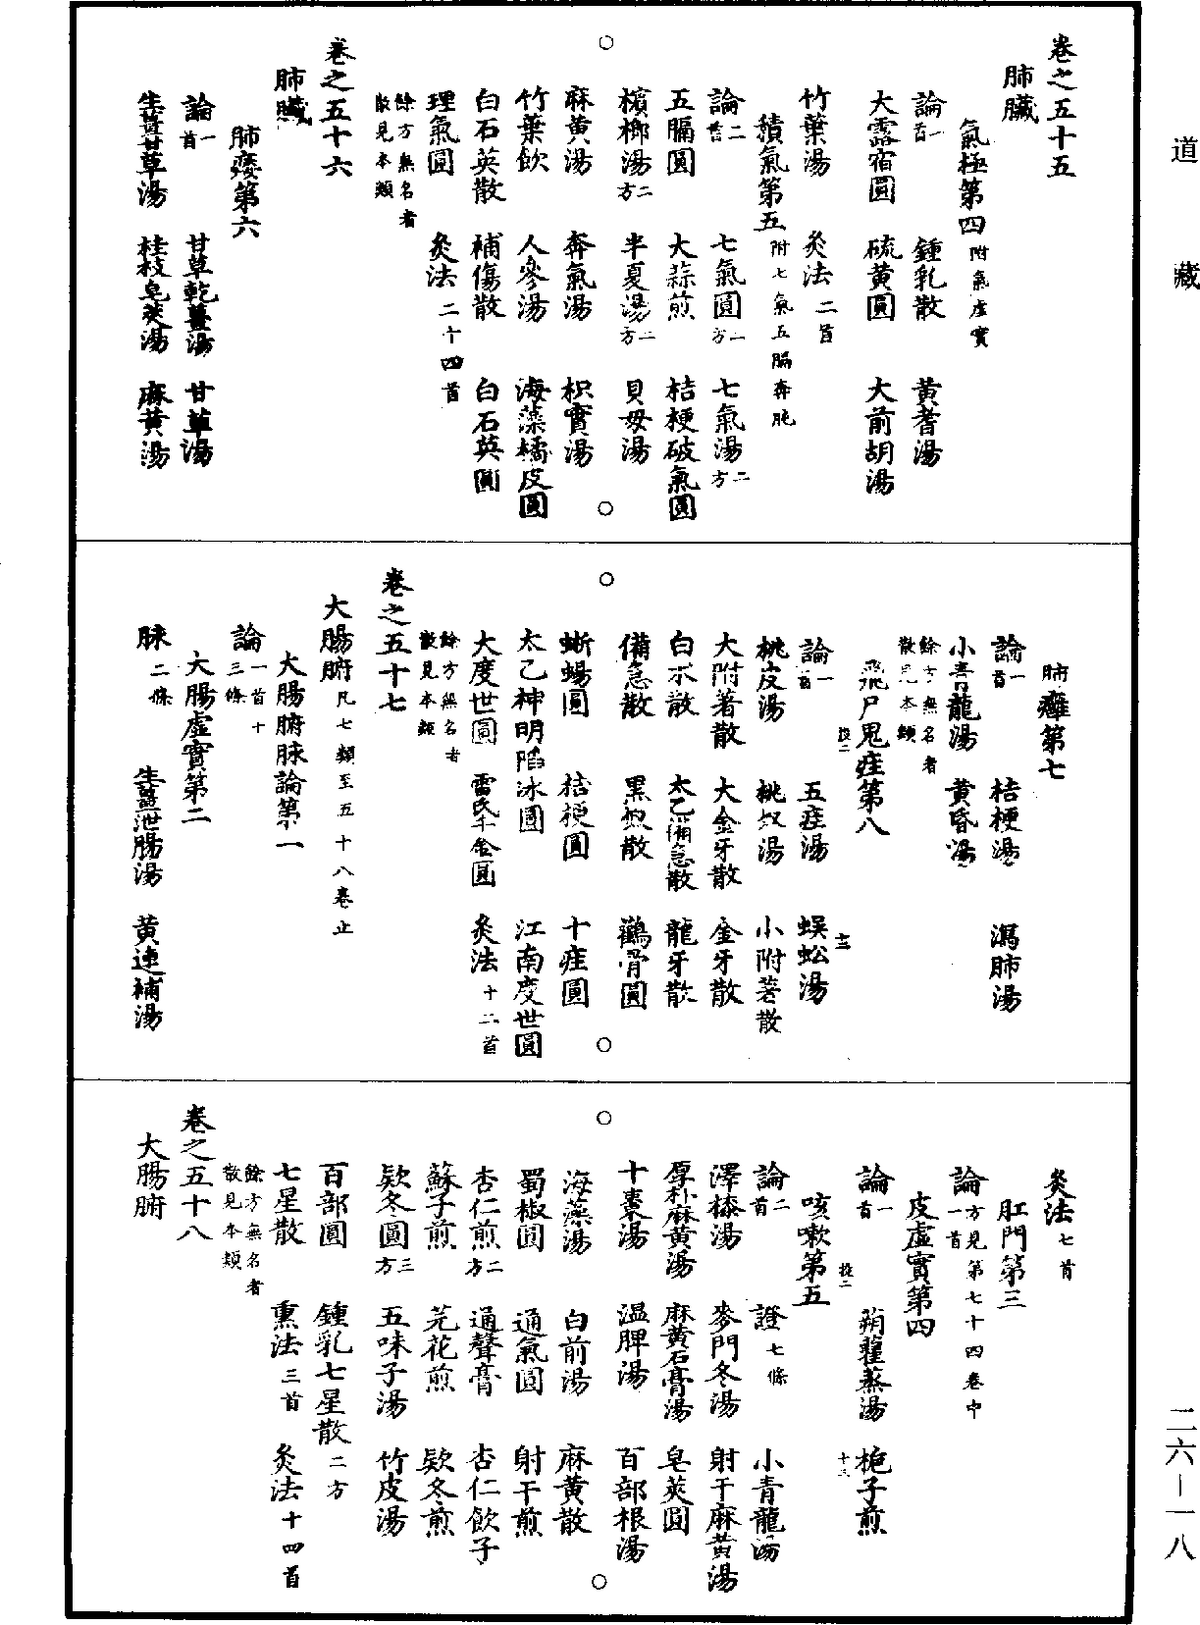 道藏
卷之五十五
肺臟
氣極第四 附氣虛實
論一首 鍾乳散 黄耆湯
大露宿圓 硫黄圓 大前胡湯
竹葉湯 灸法二首
積氣第五 附七氣五膈奔㹠
論二首 七氣圓一方 七氣湯二方
五膈圓 大蒜煎 桔梗破氣圓
檳榔湯二方 半夏湯二方 貝母湯
麻黄湯 奔氣湯 枳實湯
竹葉飲 人參湯 海藻橘皮圓
白石英散 補傷散 白石英圓
理氣圓 灸法二十四首
餘方無名者散見本類
卷之五十六
肺臟
肺痿第六
論一首 甘草乾薑湯 甘草湯
生薑甘草湯 桂枝皂莢湯 麻黄湯
肺癰第七
論一首 桔梗湯 瀉肺湯
小青龍湯 黄昏湯
餘方無名者散見本類
飛尸鬼疰第八
論一首 五疰湯 蜈蚣湯
桃皮湯 桃奴湯 小附著散
大附著散 大金牙散 金牙散
白朮散 太乙備急散 龍牙散
備急散 黑奴散 鸛骨圓
蜥蜴圓 桔梗圓 十疰圓
太乙神明陷冰圓 江南度世圓
大度世圓 雷氏千金圓 灸法十二首
餘方無名者散見本類
卷之五十七
大腸腑 凡七類至五十八卷止
大腸腑脉論第一
論一首十三條
大腸虛實第二
脉二條 生薑泄腸湯 黄連補湯
灸法七首
肛門第三
論一首 方見第七十四卷中
皮虛實第四
論一首 蒴藋蒸湯 梔子煎
咳嗽第五
論二首 證七條 小青龍湯
澤漆湯 麥門冬湯 射干麻黄湯
厚朴麻黄湯 麻黄石膏湯 皂莢圓
十棗湯 温脾湯 百部根湯
海藻湯 白前湯 麻黄散
蜀椒圓 通氣圓 射干煎
杏仁煎二方 通聲膏 杏仁飲子
蘇子煎 芫花煎 欵冬煎
欵冬圓三方 五味子湯 竹皮湯
百部圓 鍾乳七星散二方
七星散 熏法三首 灸法十四首
餘方無名者散見本類
卷之五十八
大腸腑
二六—一八